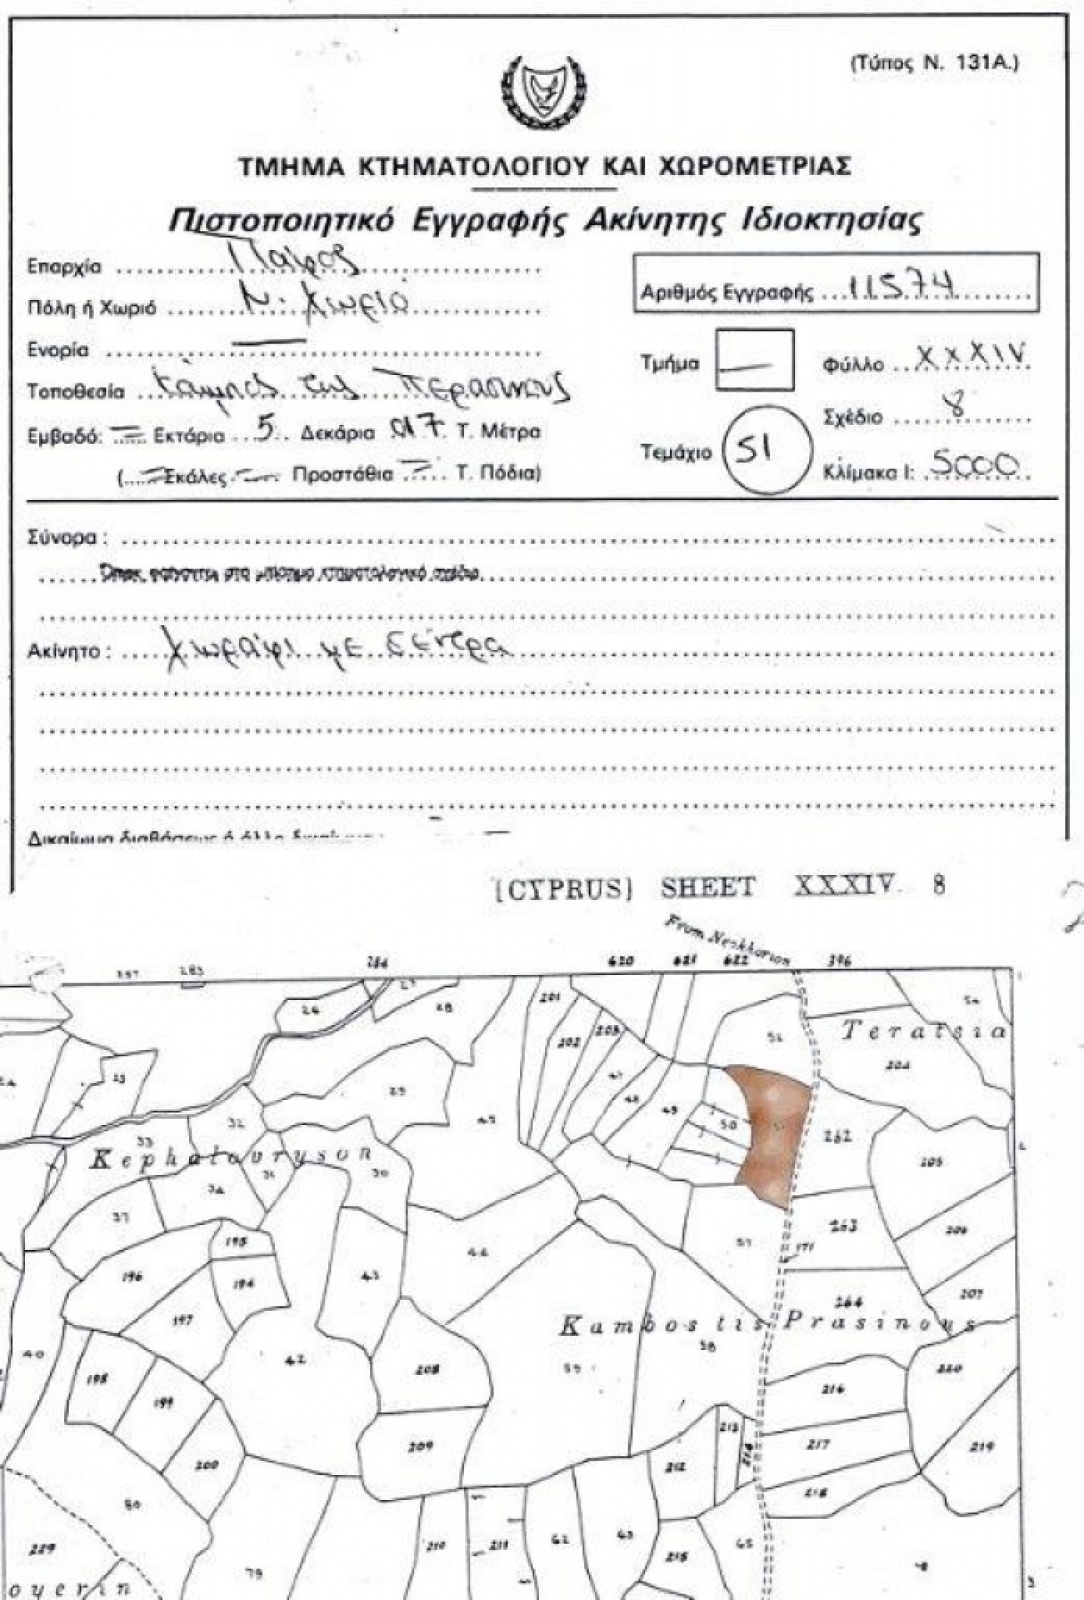 (Τύπος Ν. 131Α.)
ΤΜΗΜΑ ΚΤΗΜΑΤΟΛΟΓΙΟΥ ΚΑΙ ΧΩΡΟΜΕΤΡΙΑΣ
Πιστοποιητικό Εγγραφής Ακίνητης Ιδιοκτησίας
Επαρχία Πάφος
Πόλη ή Χωριό Ν. Χωριό
Ενορία —
Τοποθεσία Κάμπος της
Εμβαδό: = Εκτάρια 5 Δεκάρια 017 Τ. Μέτρα
(= Σκάλες — Προστάθια = Τ. Πόδια)
Αριθμός Εγγραφής 11574
Τμήμα — Φύλλο XXXIV
Σχέδιο 8
Τεμάχιο 51 Κλίμακα Ι: 5000
Σύνορα :
Όπως φαίνονται στο επίσημο κτηματολογικό σχέδιο
Ακίνητο : Χωράφι με δέντρα
[CYPRUS] SHEET XXXIV. 8
From Neokhorion
284 620 621 622 396
26 27 28 201
202 203 52
Teratsia
204
23 29 45 47 48 49 50
33 32 262
Kephalovryson
34 31 30 205
37 195 263 206
196 194 43 44 57 171
197 264 207
Kambos tis Prasinous
40 42 59 58
198 199 208 216 220
200 209 212 213 214 217 219
218
80 210 211 62 63 215 65
229 79
oyerin